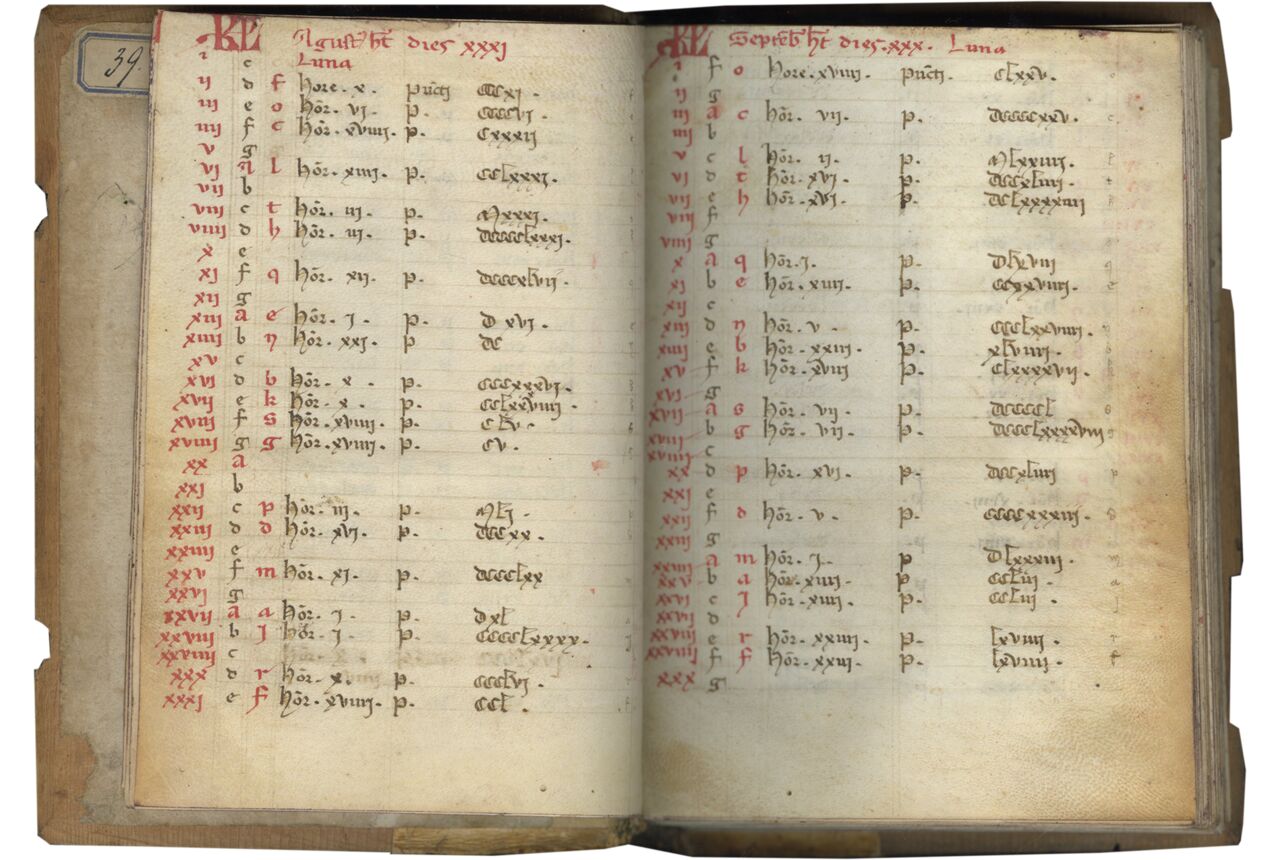 39.
KL Agust' h̄t dies xxxj
Luna
i c
ij d f hore . x . pūcti cccxj .
iij e o hōr . vj . p . ccccvj .
iiij f c hōr . xviiij . p . cxxxij
v g
vj a l hōr . xiiij . p . cclxxxj .
vij b
viij c t hōr . iij . p . Mxxxj .
viiij d h hōr . iij . p . dcccclxxxj .
x e
xj f q hōr . xij . p . dcccxlvij .
xij g
xiij a e hōr . j . p . D xvj .
xiiij b n hōr . xxj . p dc
xv c
xvj d b hōr . x . p . cccxxxvj .
xvij e k hōr . x . p . cclxxviiij .
xviij f s hōr . xviiij . p . clv .
xviiij g g hōr . xviiij . p . cv .
xx a
xxj b
xxij c p hōr . iij . p . Mlj .
xxiij d d hōr . xvj . p . dccxx .
xxiiij e
xxv f m hōr . xj . p . dccclxx
xxvj g
xxvij a a hōr . j . p . dxl
xxviij b j hōr . j . p . cccclxxxx .
xxviiij c
xxx d r hōr . x p . ccclvj .
xxxj e f hōr . xviiij . p . ccl .
KL Septēb' h̄t dies . xxx . Luna
i f o hore . xviiij . pūcti . clxxv .
ij g
iij a c hōr . vij . p . dccccxxv .
iiij b
v c l hōr . ij . p . Mlxxiiij .
vj d t hōr . xvj . p . dccxliiij .
vij e h hōr . xvj . p . dclxxxxiiij
viij f
viiij g
x a q hōr . j . p . Dlxvij
xj b e hōr . xiiij . p . ccxxviiij .
xij c
xiij d n hōr . v . p . ccclxxviiij .
xiiij e b hōr . xxiij . p . xlviiij .
xv f k hōr . xviij p . clxxxxvij .
xvj g
xvij a s hōr . vij . p . dccccl
xviij b g hōr . vij . p . dccclxxxxviij
xviiij c
xx d p hōr . xvj . p . dccxliiij
xxj e
xxij f d hōr . v . p . ccccxxxiij .
xxiij g
xxiiij a m hōr . j . p Dlxxxiij .
xxv b a hōr . xiiij . p ccliij .
xxvj c j hōr . xiiij . p . ccliij .
xxvij d
xxviij e r hōr . xxiij . p . lxviiij .
xxviiij f f hōr . xxiij . p . lxviiij .
xxx g